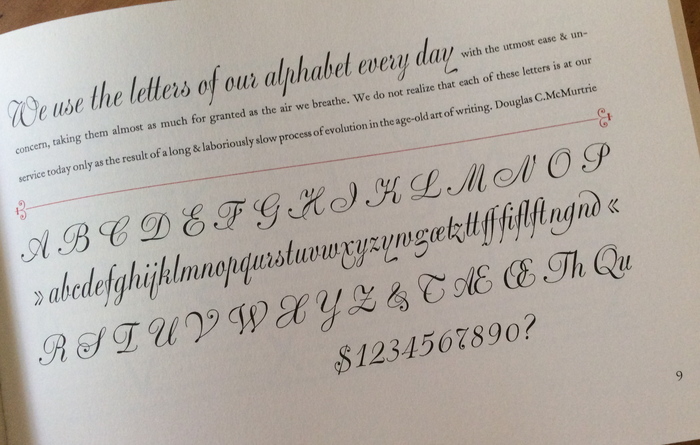 We use the letters of our alphabet every day with the utmost ease & un-
concern, taking them almost as much for granted as the air we breathe. We do not realize that each of these letters is at our
service today only as the result of a long & laboriously slow process of evolution in the age-old art of writing. Douglas C.McMurtrie
A B C D E F G H I K L M N O P
» abcdefghijklmnopqurstuvwxyzywgætzttfffiflftngnd «
R S T U V W X Y Z & T Æ Œ Th Qu
$1234567890?
9